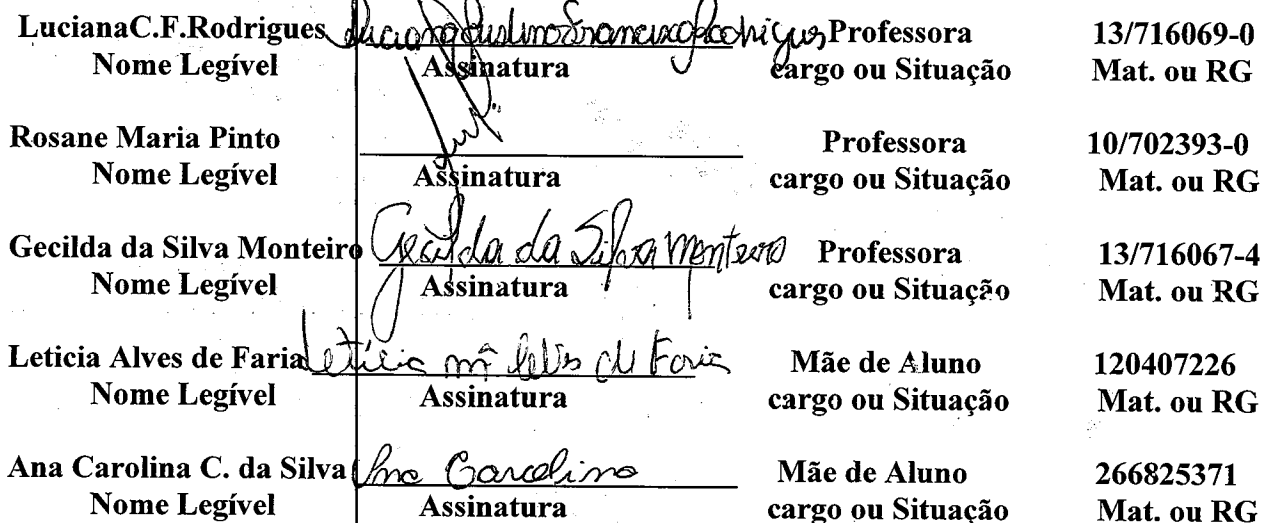 LucianaC.F.Rodrigues Professora 13/716069-0
Nome Legível Assinatura cargo ou Situação Mat. ou RG
Rosane Maria Pinto Professora 10/702393-0
Nome Legível Assinatura cargo ou Situação Mat. ou RG
Gecilda da Silva Monteiro Gecilda da Silva Monteiro Professora 13/716067-4
Nome Legível Assinatura cargo ou Situação Mat. ou RG
Leticia Alves de Faria Letícia de Faria Mãe de Aluno 120407226
Nome Legível Assinatura cargo ou Situação Mat. ou RG
Ana Carolina C. da Silva Ana Mãe de Aluno 266825371
Nome Legível Assinatura cargo ou Situação Mat. ou RG